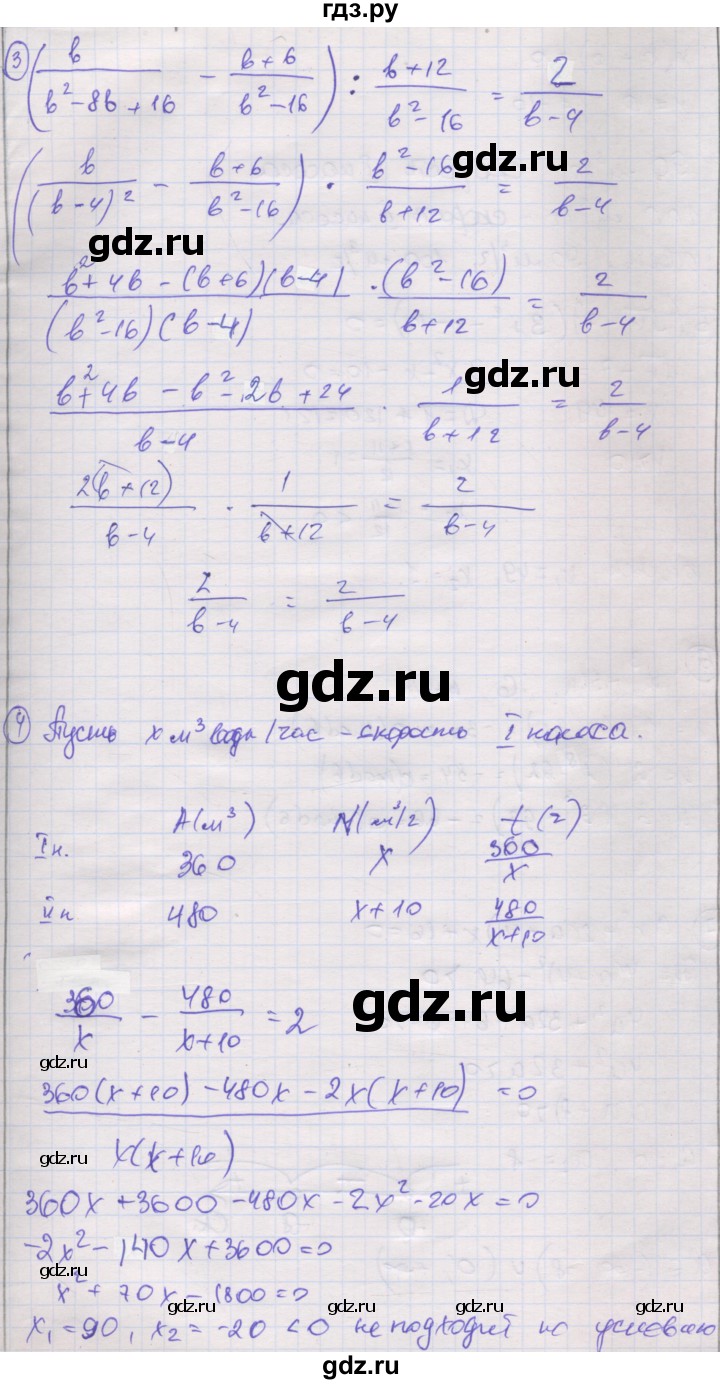 гдз.ру
3 (b/(b²-8b+16) - (b+6)/(b²-16)) : (b+12)/(b²-16) = 2/(b-4)
gdz.ru
(b/(b-4)² - (b+6)/(b²-16)) · (b²-16)/(b+12) = 2/(b-4)
gdz.ru
(b²+4b-(b+6)(b-4))/((b²-16)(b-4)) · (b²-16)/(b+12) = 2/(b-4)
gdz.ru
(b²+4b-b²-2b+24)/(b-4) · 1/(b+12) = 2/(b-4)
2(b+12)/(b-4) · 1/(b+12) = 2/(b-4)
2/(b-4) = 2/(b-4)
gdz.ru
4 Пусть x м³ воды/час - скорость I насоса.
A(м³) N(м³/г) t(г)
I н. 360 x 360/x
II н 480 x+10 480/(x+10)
360/x - 480/(x+10) = 2
gdz.ru
gdz.ru
(360(x+10)-480x-2x(x+10))/(x(x+10)) = 0
gdz.ru
gdz.ru
360x+3600-480x-2x²-20x=0
-2x²-140x+3600=0
gdz.ru
x²+70x-1800=0
gdz.ru
x₁=90, x₂=-20<0 не подходит по условию
gdz.ru